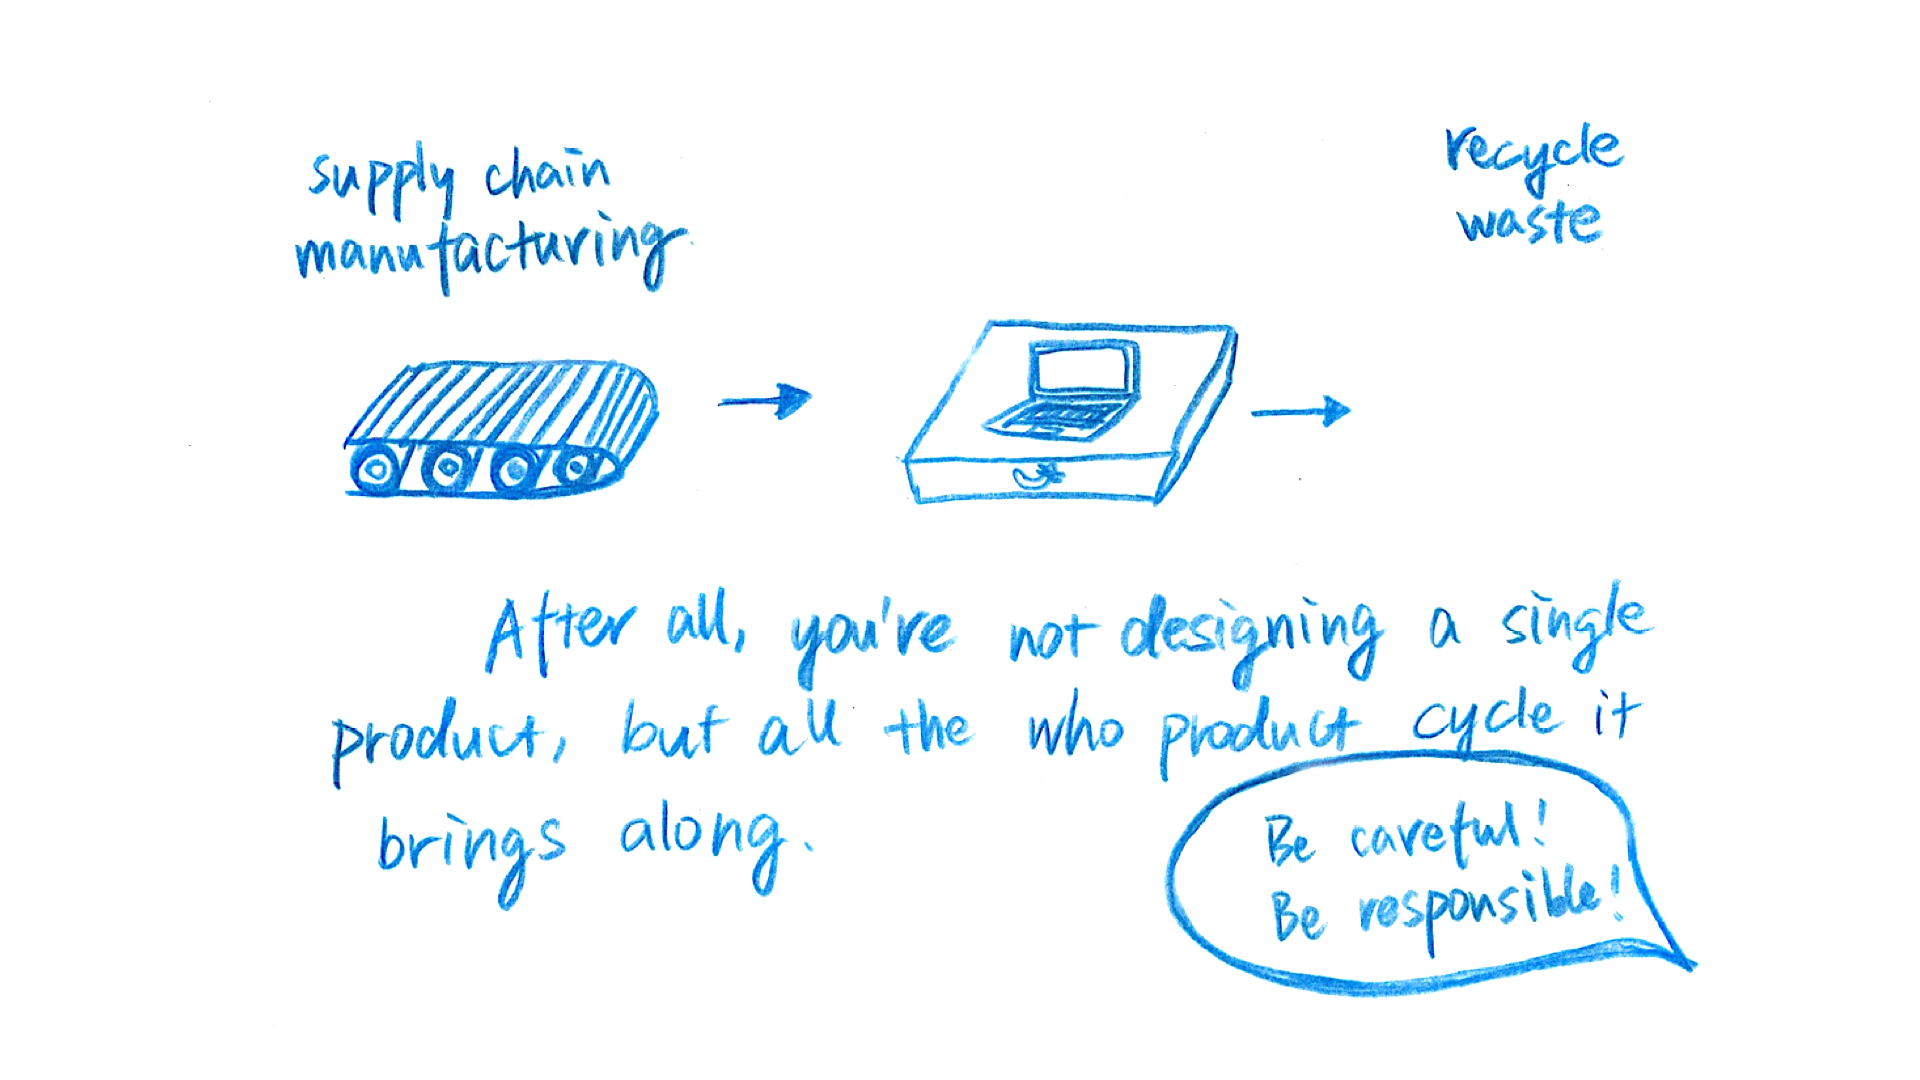 supply chain
manufacturing.
recycle
waste
After all, you're not designing a single
product, but all the who product cycle it
brings along.
Be careful!
Be responsible!